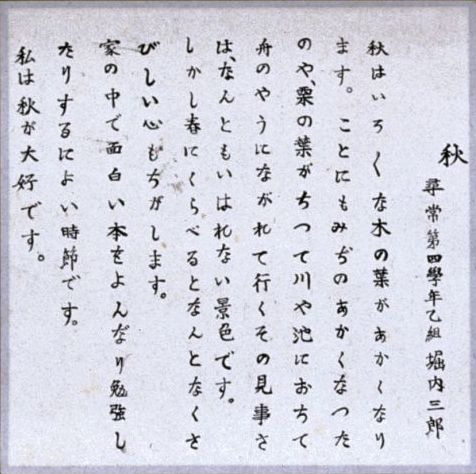 秋
尋常第四學年乙組 堀内三郎
秋はいろ〱な木の葉があかくなり
ます。ことにもみぢのあかくなつた
のや、栗の葉がちつて川や池におちて
舟のやうにながれて行くその見事さ
は、なんともいはれない景色です。
しかし春にくらべるとなんとなくさ
びしい心もちがします。
家の中で面白い本をよんだり勉強し
たりするによい時節です。
私は秋が大好です。